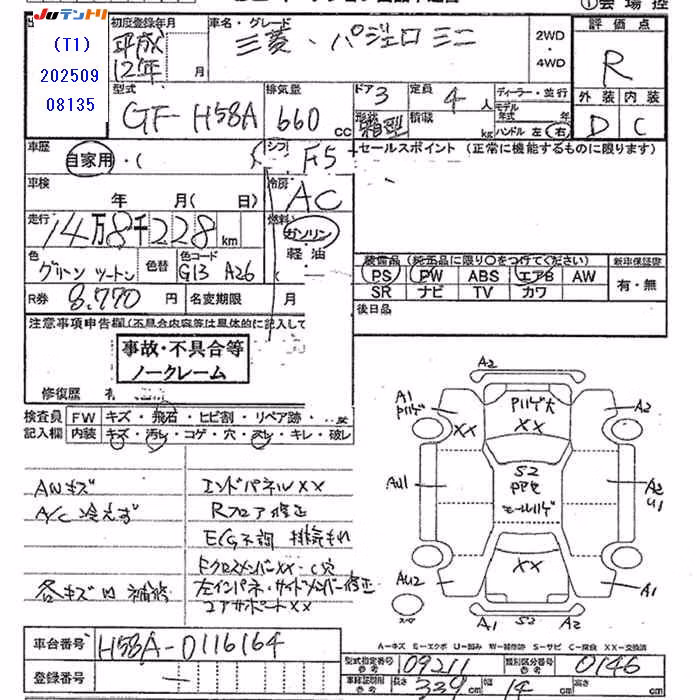 JUテントリ
(T1)
202509
08135
初度登録年月
平成
12年 月
車名・グレード
三菱・パジェロミニ
2WD
・
4WD
評価点
R
外装 内装
D C
型式
GF-H58A
排気量
660 cc
ドア 3
定員 4 人
形状 箱型
積載 kg
ディーラー・並行
モデル
年式 年
ハンドル 左 右
車歴
自家用・(
シフト F5
セールスポイント (正常に機能するものに限ります)
車検
年 月( 日)
冷房
AC
走行
14万8千228km
燃料
ガソリン
軽油
(
色
グリーン ツートン
色替
色コード
G13 A26
装備品 (純正品に限り○をつけてください)
PS PW ABS エアB AW
SR ナビ TV カワ
新車保証書
有・無
R券 8,770 円
名変期限 (月
後日品
注意事項申告欄(不具合内容等は具体的に記入して
事故・不具合等
ノークレーム
修復歴 有
検査員
記入欄
FW キズ・飛石・ヒビ割・リペア跡・
内装 キズ・汚レ・コゲ・穴・スレ・キレ・破レ
AWキズ
A/C 冷えず
各キズ凹補修
エンドパネルXX
Rフロア修正
E/G不調 排気もれ
FクロスメンバーXX・C穴
左インパネ・サイドメンバー修正
コアサポートXX
A2
A1
XX
XX
A2
AU1
S2
A2
U1
XX
AU2
A1
スペア
A1 S2 A2
A-キズ E-エクボ U-凹み W-補修跡 S-サビ C-腐食 XX-交換済
車台番号
H58A-0116164
登録番号
—
型式指定番号
参考
09211
類別区分番号
参考
0146
車検証期限
参考
長さ
339 cm
幅
14 cm
高さ
cm